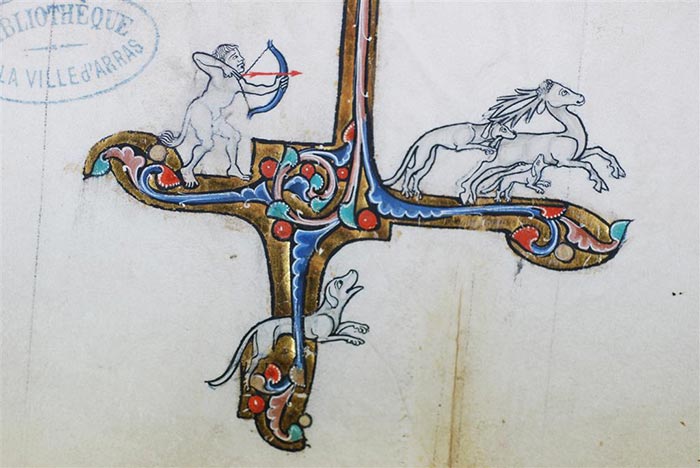 BIBLIOTHÈQUE
LA VILLE d'ARRAS